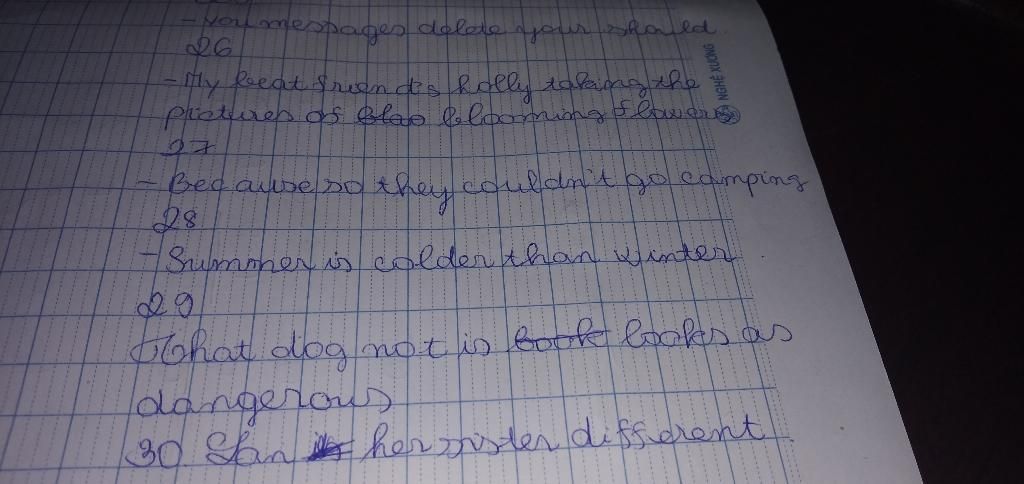 - You messages delete your should
26
- My beat friend is holly taking the
pictures of blooming flowers
NGHÊ XƯƠNG
27
- Because so they couldn't go camping
28
- Summer is colder than winter
29
That dog not is looks as
dangerous
30. her sister different